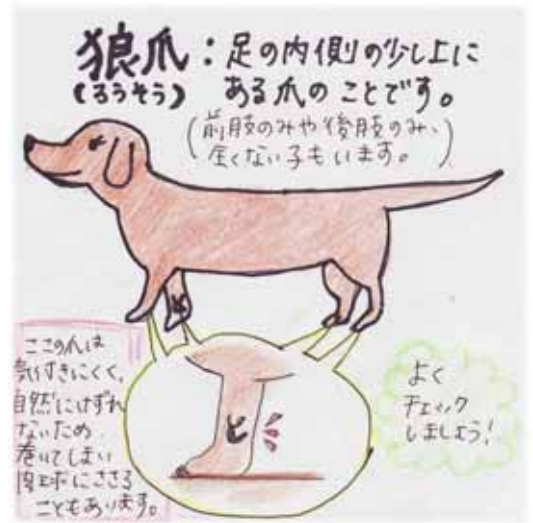 狼爪：足の内側の少し上に
(ろうそう) ある爪のことです。
(前肢のみや後肢のみ、
全くない子もいます。)
ここの爪は
気付きにくく、
自然にけずれ
ないため
巻いてしまい
肉球にささる
こともあります。
よく
チェック
しましょう!